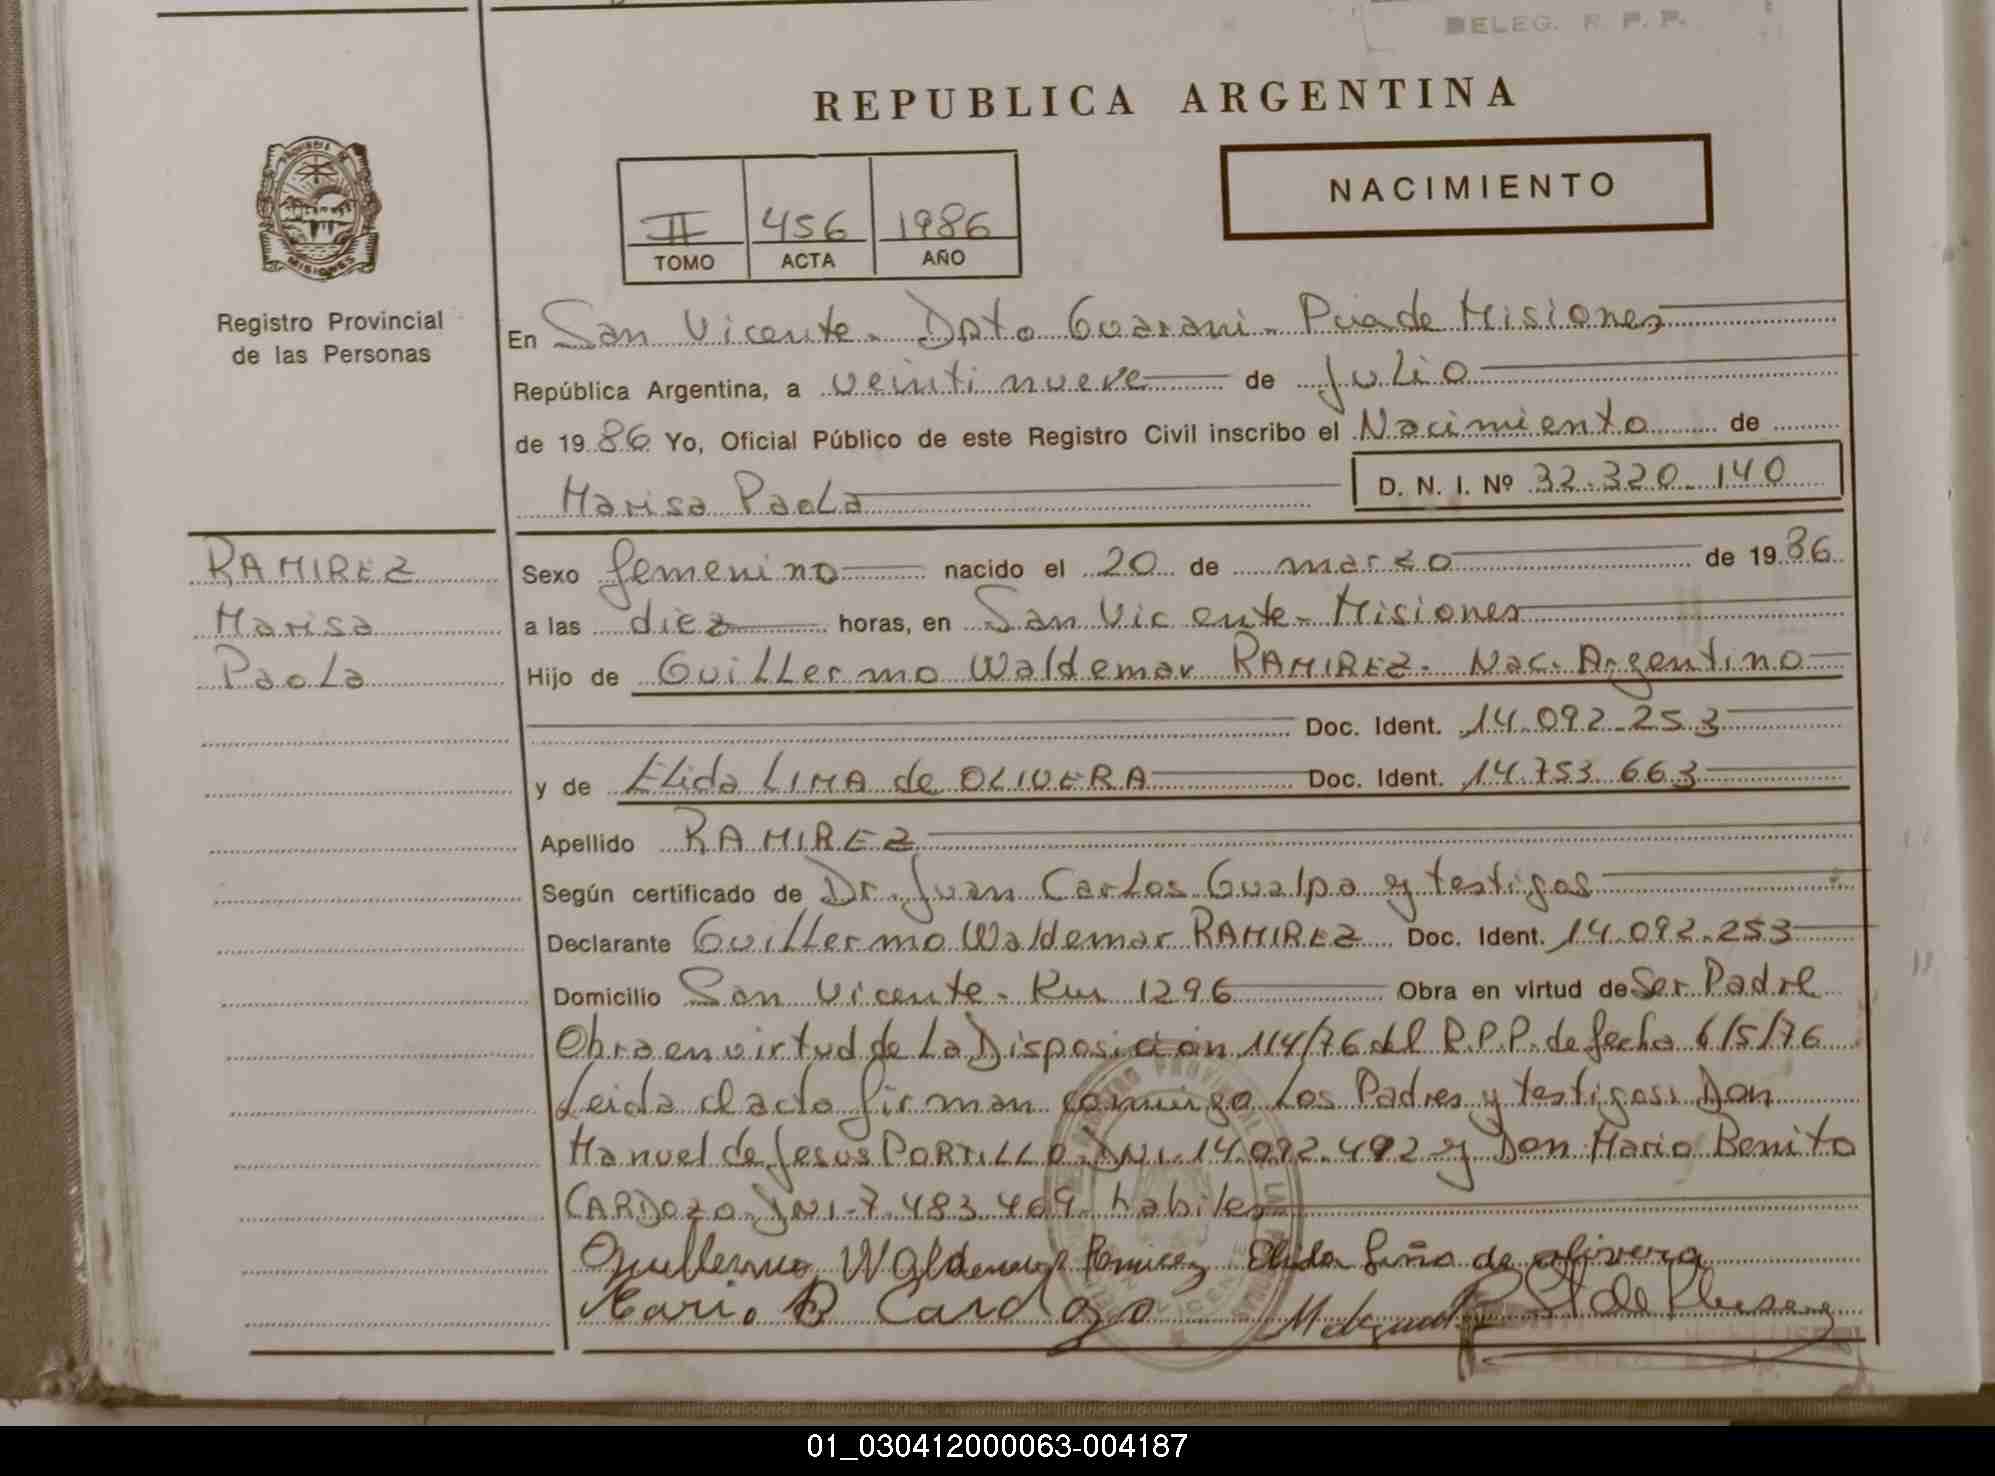 DELEG. R. P. P.
REPUBLICA ARGENTINA
PROVINCIA DE
MISIONES
NACIMIENTO
II 456 1986
TOMO ACTA AÑO
Registro Provincial
de las Personas
En San Vicente - Dpto Guarani - Pcia de Misiones
República Argentina, a veinti nueve de Julio
de 1986 Yo, Oficial Público de este Registro Civil inscribo el Nacimiento de
Marisa Paola D. N. I. Nº 32.320.140
RAMIREZ
Marisa
Paola
Sexo femenino nacido el 20 de marzo de 1986
a las diez horas, en San Vicente - Misiones
Hijo de Guillermo Waldemar RAMIREZ - Nac. Argentino
Doc. Ident. 14.092.253
y de Elida LIMA de OLIVERA Doc. Ident. 14.753.663
Apellido RAMIREZ
Según certificado de Dr. Juan Carlos Gualpa y testigos
Declarante Guillermo Waldemar RAMIREZ Doc. Ident. 14.092.253
Domicilio San Vicente - Km 1296 Obra en virtud de Ser Padre
Obra en virtud de La Disposición 114/76 del R.P.P. de fecha 6/5/76
Leida el acta firman conmigo Los Padres y testigos: Don
Manuel de Jesus PORTILLO DNI. 14.092.492 y Don Mario Benito
CARDOZO DNI-7.483.469 - habiles
Guillermo Waldemar Ramirez Elida Lima de olivera
Mario B Cardozo
01_030412000063-004187